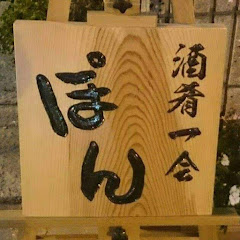 酒肴一会
ぽん